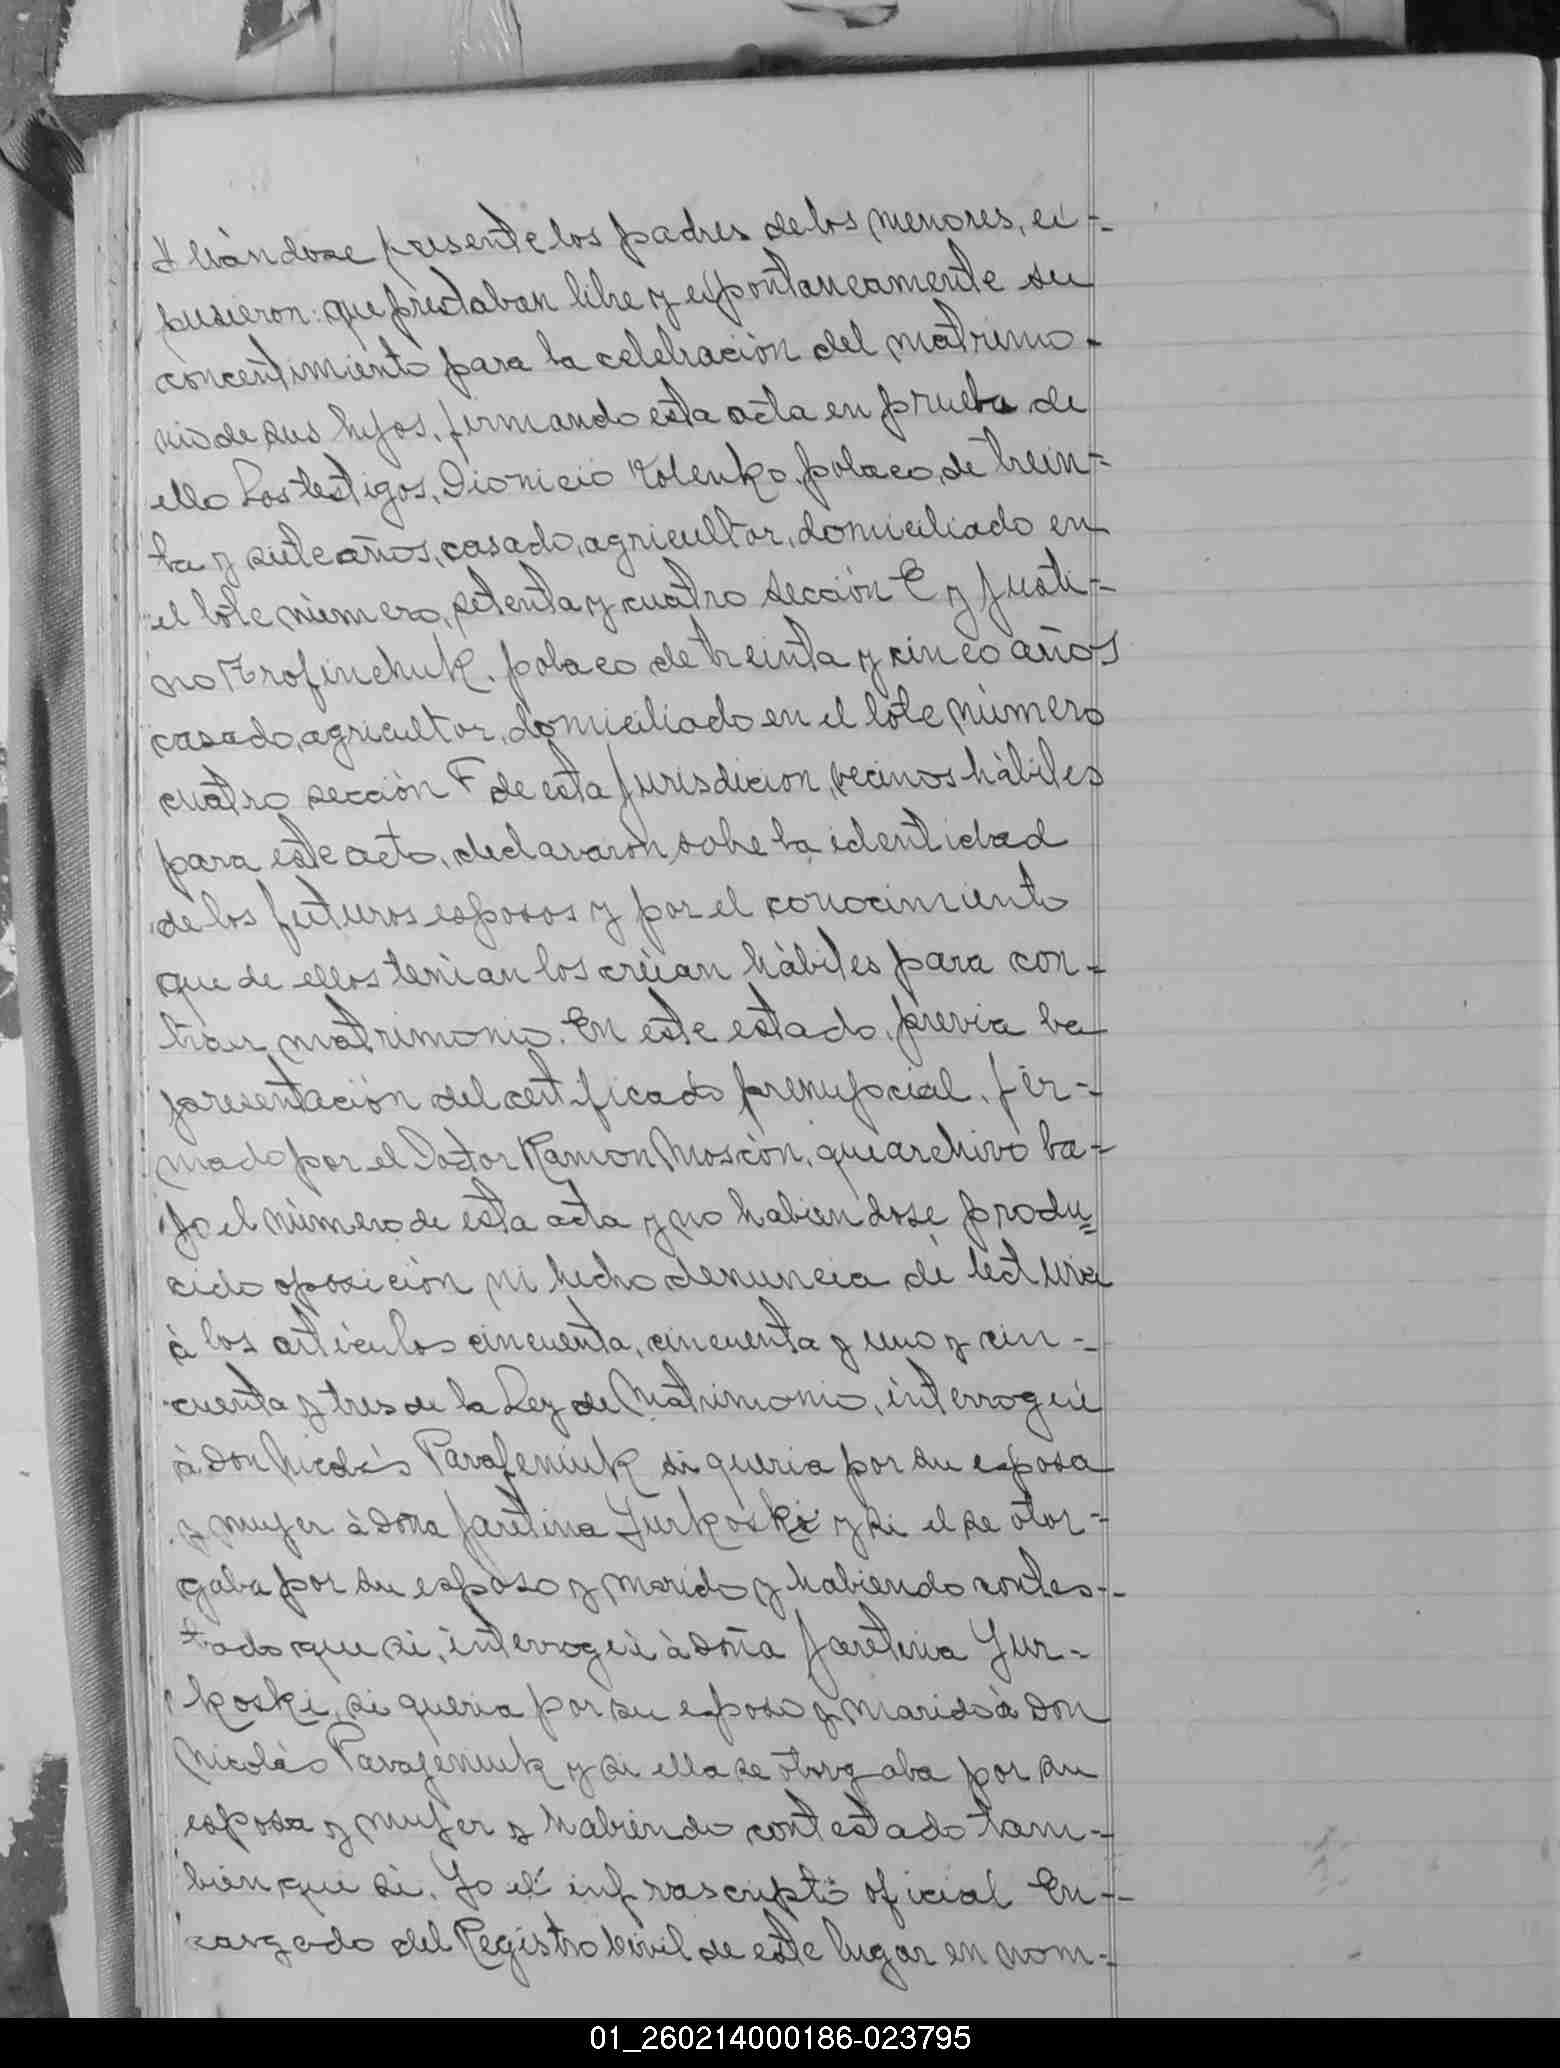 llándose presente los padres de los menores, ex-
pusieron: que prestaban libre y espontaneamente su
concentimiento para la celebración del matrimo-
nio de sus hijos, firmando esta acta en prueba de
ello Los testigos, Dionicio Kolenko, polaco, de trein=
ta y siete años, casado, agricultor, domiciliado en
el lote número, setenta y cuatro sección C y Justi-
no Trofinchuk, polaco de treinta y cinco años
casado, agricultor, domiciliado en el lote número
cuatro sección F de esta Jurisdicion, vecinos hàbiles
para este acto, declararon sobre la identidad
de los futuros esposos y por el conocimiento
que de ellos tenian los creian hàbiles para con-
traer matrimonio. En este estado, previa la
presentación del certificado prenupcial, fir-
mado por el Doctor Ramon Moscón, que archivo ba-
jo el nùmero de esta acta y no habiendose produ=
cido oposición ni hecho denuncia di lectura
à los artìculos cincuenta, cincuenta y uno y cin-
cuenta y tres de la Ley de Matrimonio, interrogué
à Don Nicolás Parafeniuk si queria por su esposa
y mujer à Doña Jaretina Jurkoski y si el se otor-
gaba por su esposo y marido y habiendo contes-
tado que si, interrogué à Doña Jaretina Jur-
koski, si queria por su esposo y marido à Don
Nicolás Parafeniuk y si ella se otorgaba por su
esposa y mujer y habiendo contestado tam-
bien que si. Yo el infrascripto oficial En-
cargado del Registro Civil de este lugar en nom-
01_260214000186-023795